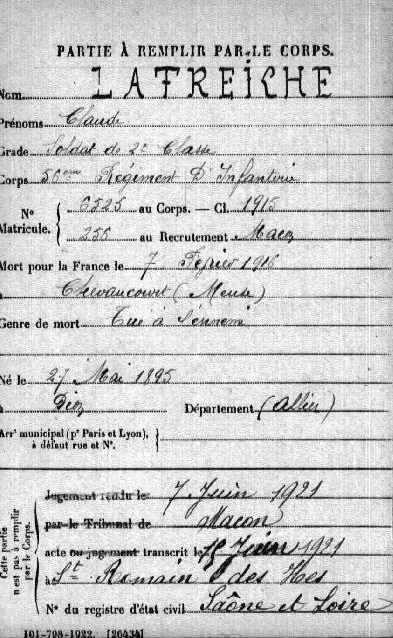 PARTIE À REMPLIR PAR LE CORPS.
Nom LATREICHE
Prénoms Claude
Grade Soldat de 2e Classe
Corps 56em Régiment D'Infanterie
N° Matricule. { 6525 au Corps. — Cl. 1915
256 au Recrutement Macon
Mort pour la France le 7 Février 1916
à Chevaucourt (Meuse)
Genre de mort Tué à l'ennemi
Né le 27 Mai 1895
à Diou Département (Allier)
Arrt municipal (pr Paris et Lyon), à défaut rue et N°. }
Cette partie n'est pas à remplir par le Corps.
Jugement rendu le 7 Juin 1921
par le Tribunal de Macon
acte ou jugement transcrit le 15 Juin 1921
à St Romain des Iles
N° du registre d'état civil Saône et Loire
101-708-1922. [26434]